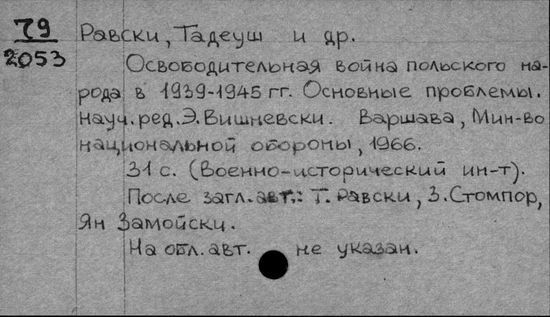 79
2053
Равски, Тадеуш и др.
Освободительная война польского на-
рода в 1939-1945 гг. Основные проблемы.
Науч. ред. Э. Вишневски. Варшава, Мин-во
национальной обороны, 1966.
31 с. (Военно-исторический ин-т).
После загл. авт.: Т. Равски, З. Стомпор,
Ян Замойски.
На обл. авт. не указан.